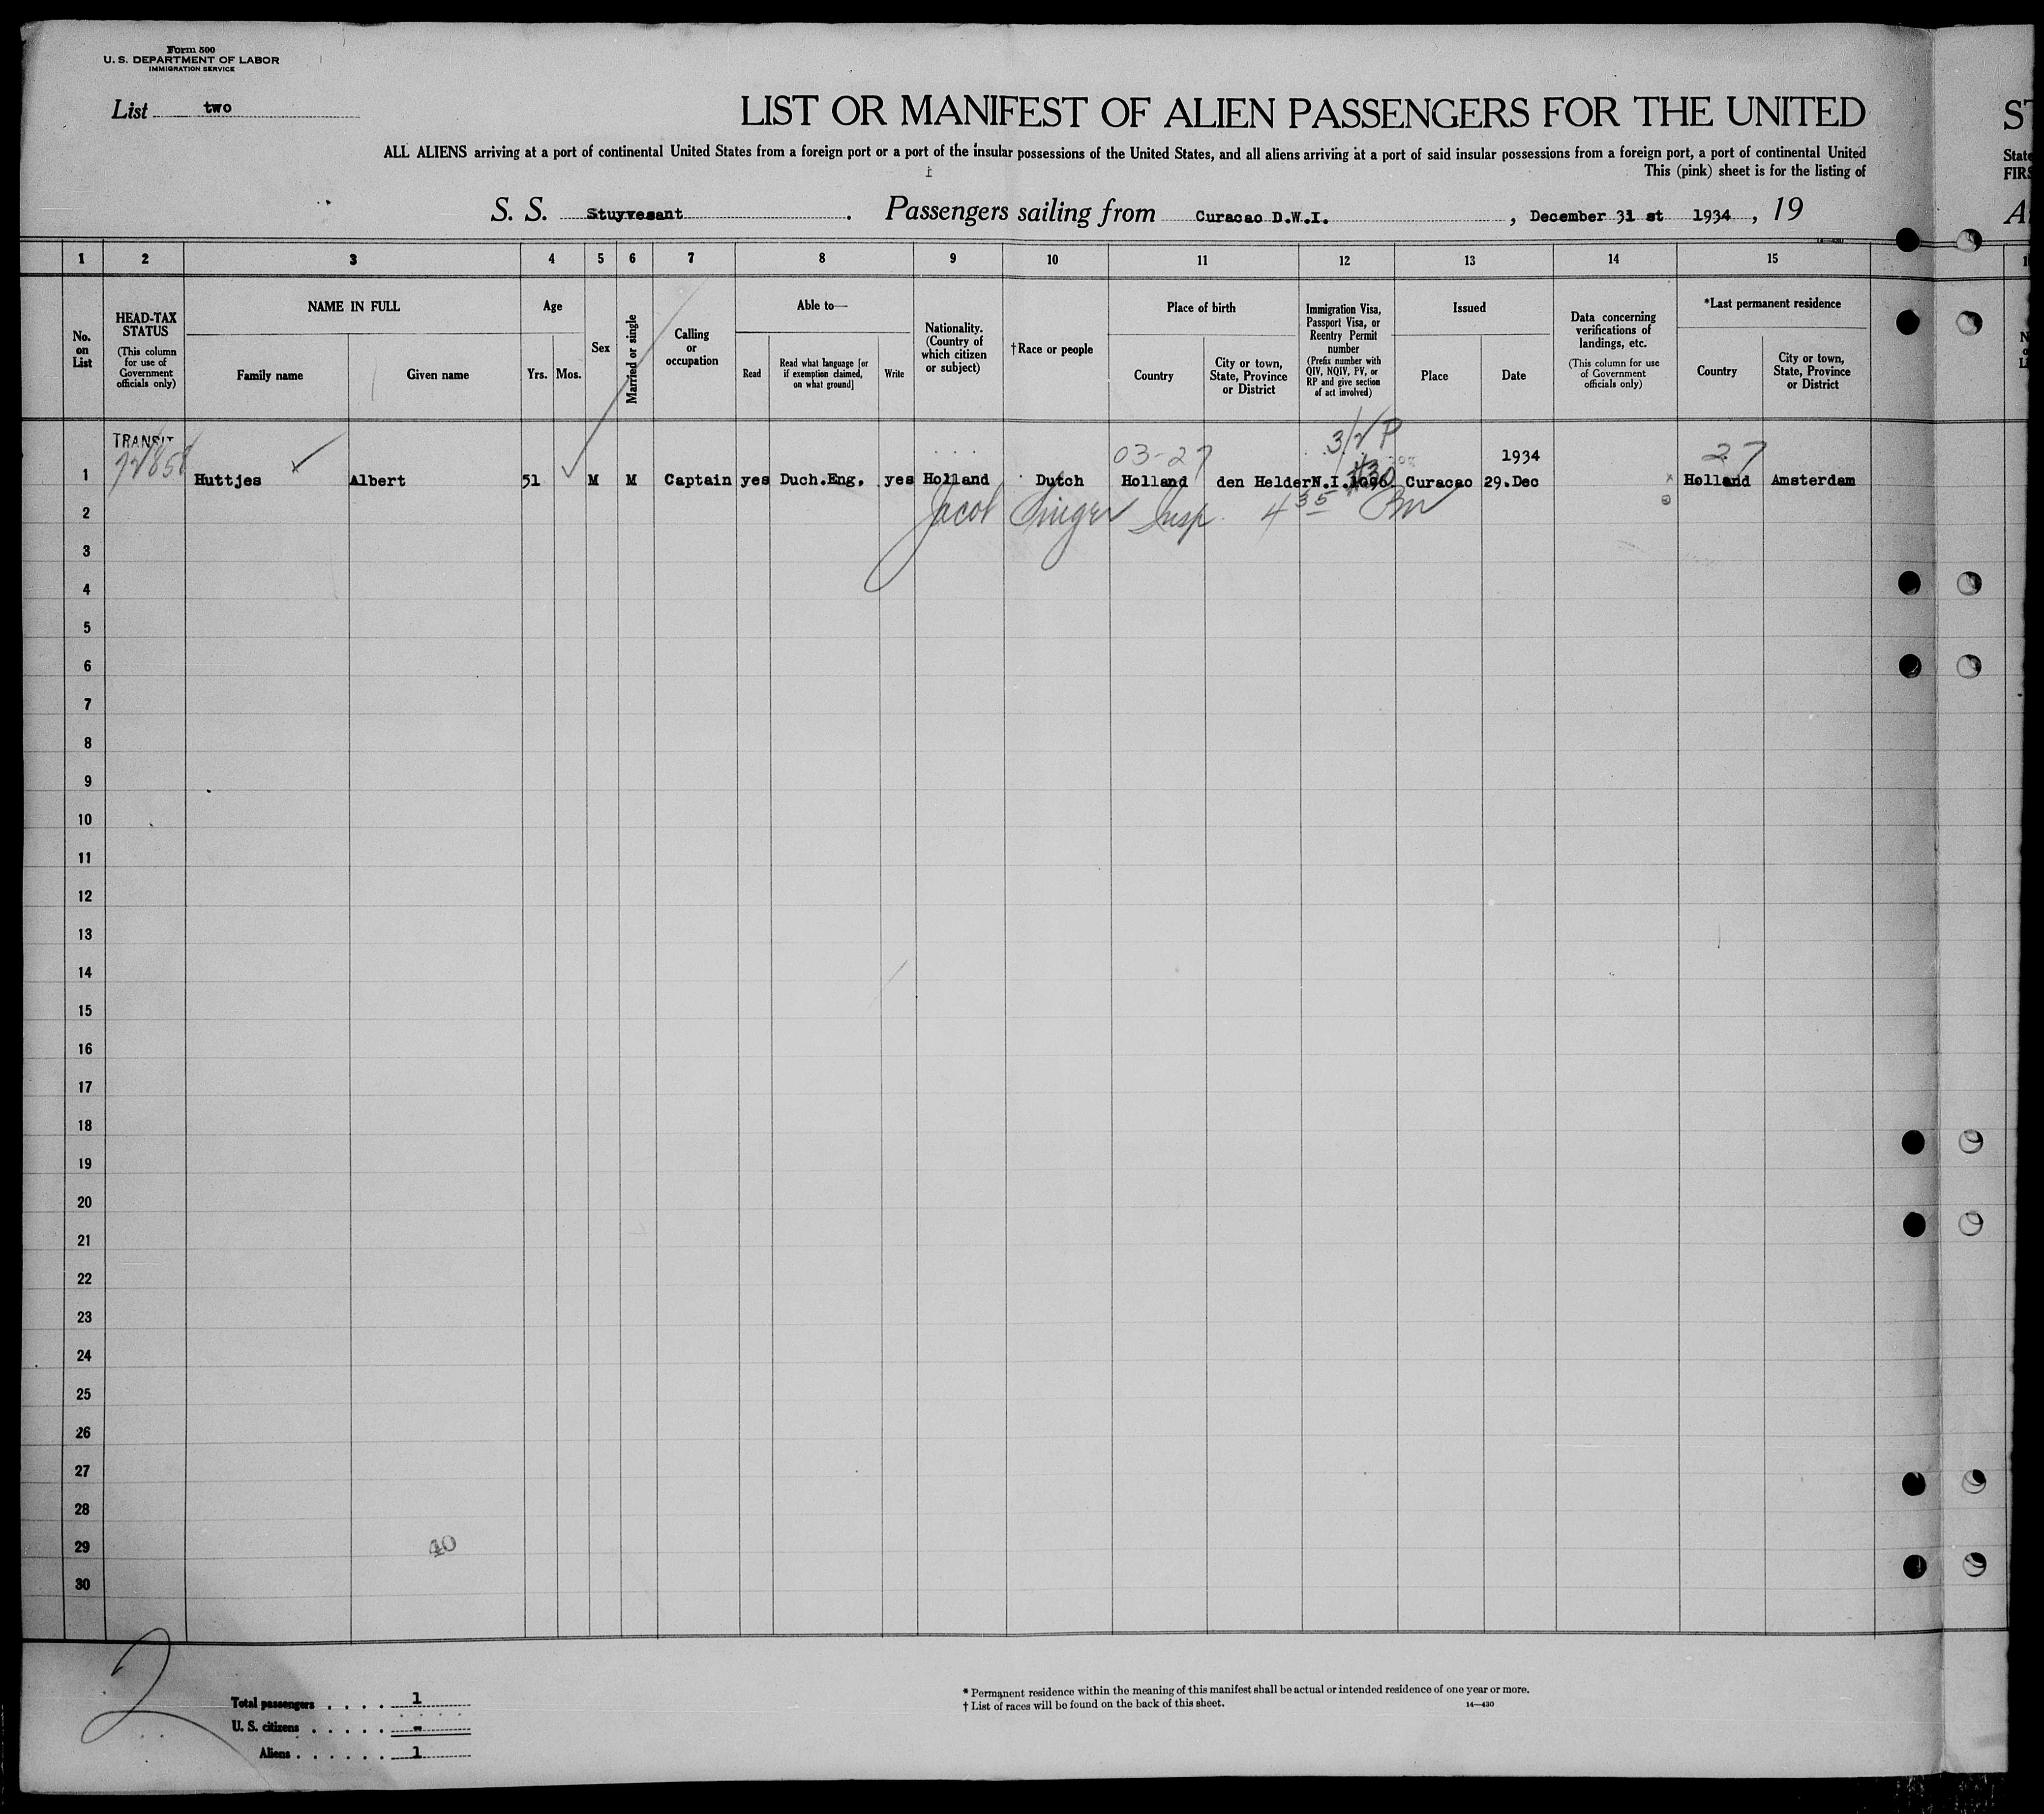 Form 500
U. S. DEPARTMENT OF LABOR
IMMIGRATION SERVICE
List two
LIST OR MANIFEST OF ALIEN PASSENGERS FOR THE UNITED
ST
ALL ALIENS arriving at a port of continental United States from a foreign port or a port of the insular possessions of the United States, and all aliens arriving at a port of said insular possessions from a foreign port, a port of continental United
State
This (pink) sheet is for the listing of
FIRS
S. S. Stuyvesant . Passengers sailing from Curacao D.W.I. , December 31 st 1934 , 19
A
1 2 3 4 5 6 7 8 9 10 11 12 13 14 15
No. on List
HEAD-TAX STATUS
(This column for use of Government officials only)
NAME IN FULL
Family name
Given name
Age
Yrs. Mos.
Sex
Married or single
Calling or occupation
Able to—
Read
Read what language [or if exemption claimed, on what ground]
Write
Nationality. (Country of which citizen or subject)
†Race or people
Place of birth
Country
City or town, State, Province or District
Immigration Visa, Passport Visa, or Reentry Permit number
(Prefix number with QIV, NQIV, PV, or RP and give section of act involved)
Issued
Place
Date
Data concerning verifications of landings, etc.
(This column for use of Government officials only)
*Last permanent residence
Country
City or town, State, Province or District
TRANSIT
03-27
3/2 P
1934
27
1 Huttjes Albert 51 M M Captain yes Duch.Eng. yes Holland Dutch Holland den Helder N.I. Curacao 29.Dec Holland Amsterdam
2 Jacob Singer Insp. 4 35 PM
3
4
5
6
7
8
9
10
11
12
13
14
15
16
17
18
19
20
21
22
23
24
25
26
27
28
29
40
30
2
Total passengers . . . . 1
U. S. citizens . . . . . -
Aliens . . . . . . 1
* Permanent residence within the meaning of this manifest shall be actual or intended residence of one year or more.
† List of races will be found on the back of this sheet.
14—430